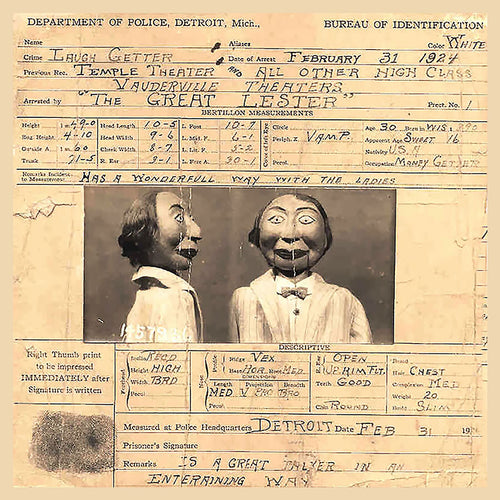 DEPARTMENT OF POLICE, DETROIT, Mich., BUREAU OF IDENTIFICATION
Name Aliases Color WHITE
Crime LAUGH GETTER Date of Arrest FEBRUARY 31 1924
Previous Rec. TEMPLE THEATER AND ALL OTHER HIGH CLASS
VAUDERVILLE THEATERS
Arrested by "THE GREAT LESTER" Prect. No. 1
BERTILLON MEASUREMENTS
Height 1 m Head Length 10-5 L. Foot 10-7 Circle Age 30 Born in WIS.
Eng. Height 4-10 Head Width 9-6 L. Mid. F. 6-1 Periph. Z VAMP. Apparent Age SWEET 16
Outside A. 1 m 60 Cheek Width 8-7 L. Lit. F. 5-2 Nativity U.S.A
Trunk 71-5 R. Ear 3-1 L. Fore A. 20-1 Pecul. Occupation MONEY GETTER
Remarks Incident to Measurement HAS A WONDERFULL WAY WITH THE LADIES
DESCRIPTIVE
Right Thumb print
to be impressed
IMMEDIATELY after
Signature is written
Forehead Inclin. RECD Ridge VEX R. Ear OPEN Beard
Height HIGH Base HOR. Root MED. Hair CHEST
Width BRD DIMENSIONS Teeth GOOD Complexion MED
Pecul. Length Projection Breadth Weight 20
MED Chin ROUND Build SLIM
Pecul.
Measured at Police Headquarters DETROIT Date FEB 31 19
Prisoner's Signature
Remarks IS A GREAT TALKER IN AN
ENTERAINING WAY